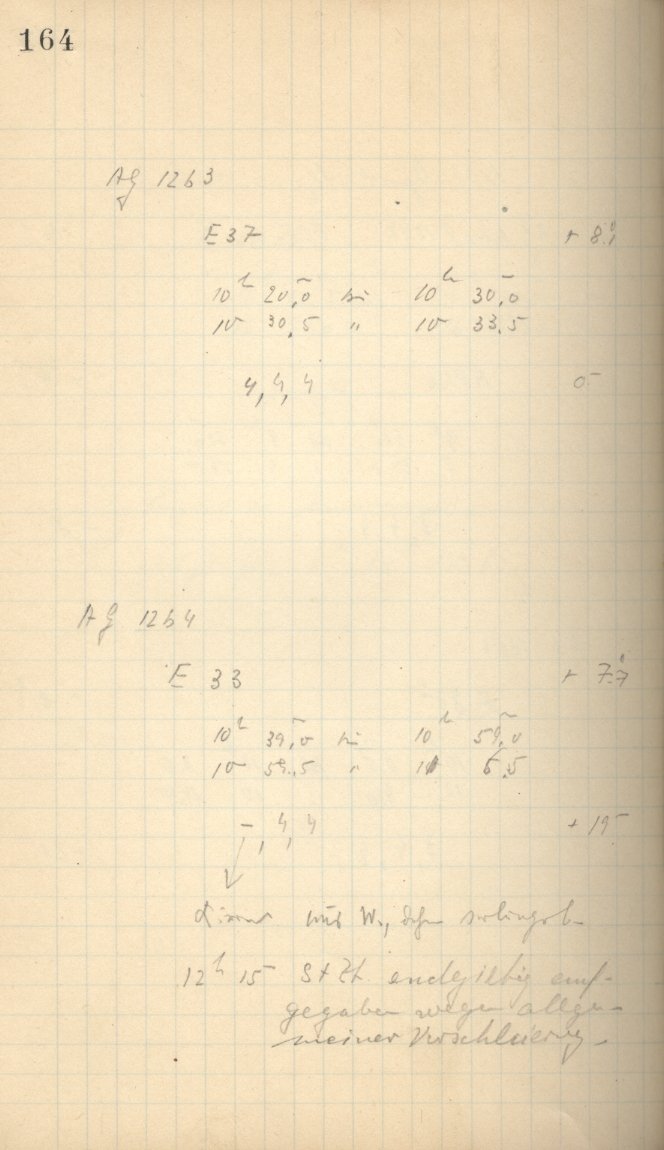 164
AG 1263
E 37 + 8.°1
10ʰ 20,ᵐ0 bis 10ʰ 30,ᵐ0
10 30,5 " 10 33,5
4, 4, 4 0
AG 1264
E 33 + 7.°7
10ʰ 39,ᵐ0 bis 10ʰ 59,ᵐ0
10 59,5 " 11 6,5
–, 4, 4 + 15
aus W.,
12ʰ 15 St Zt. endgiltig auf-
gegeben wegen allge-
meiner Verschleierung.